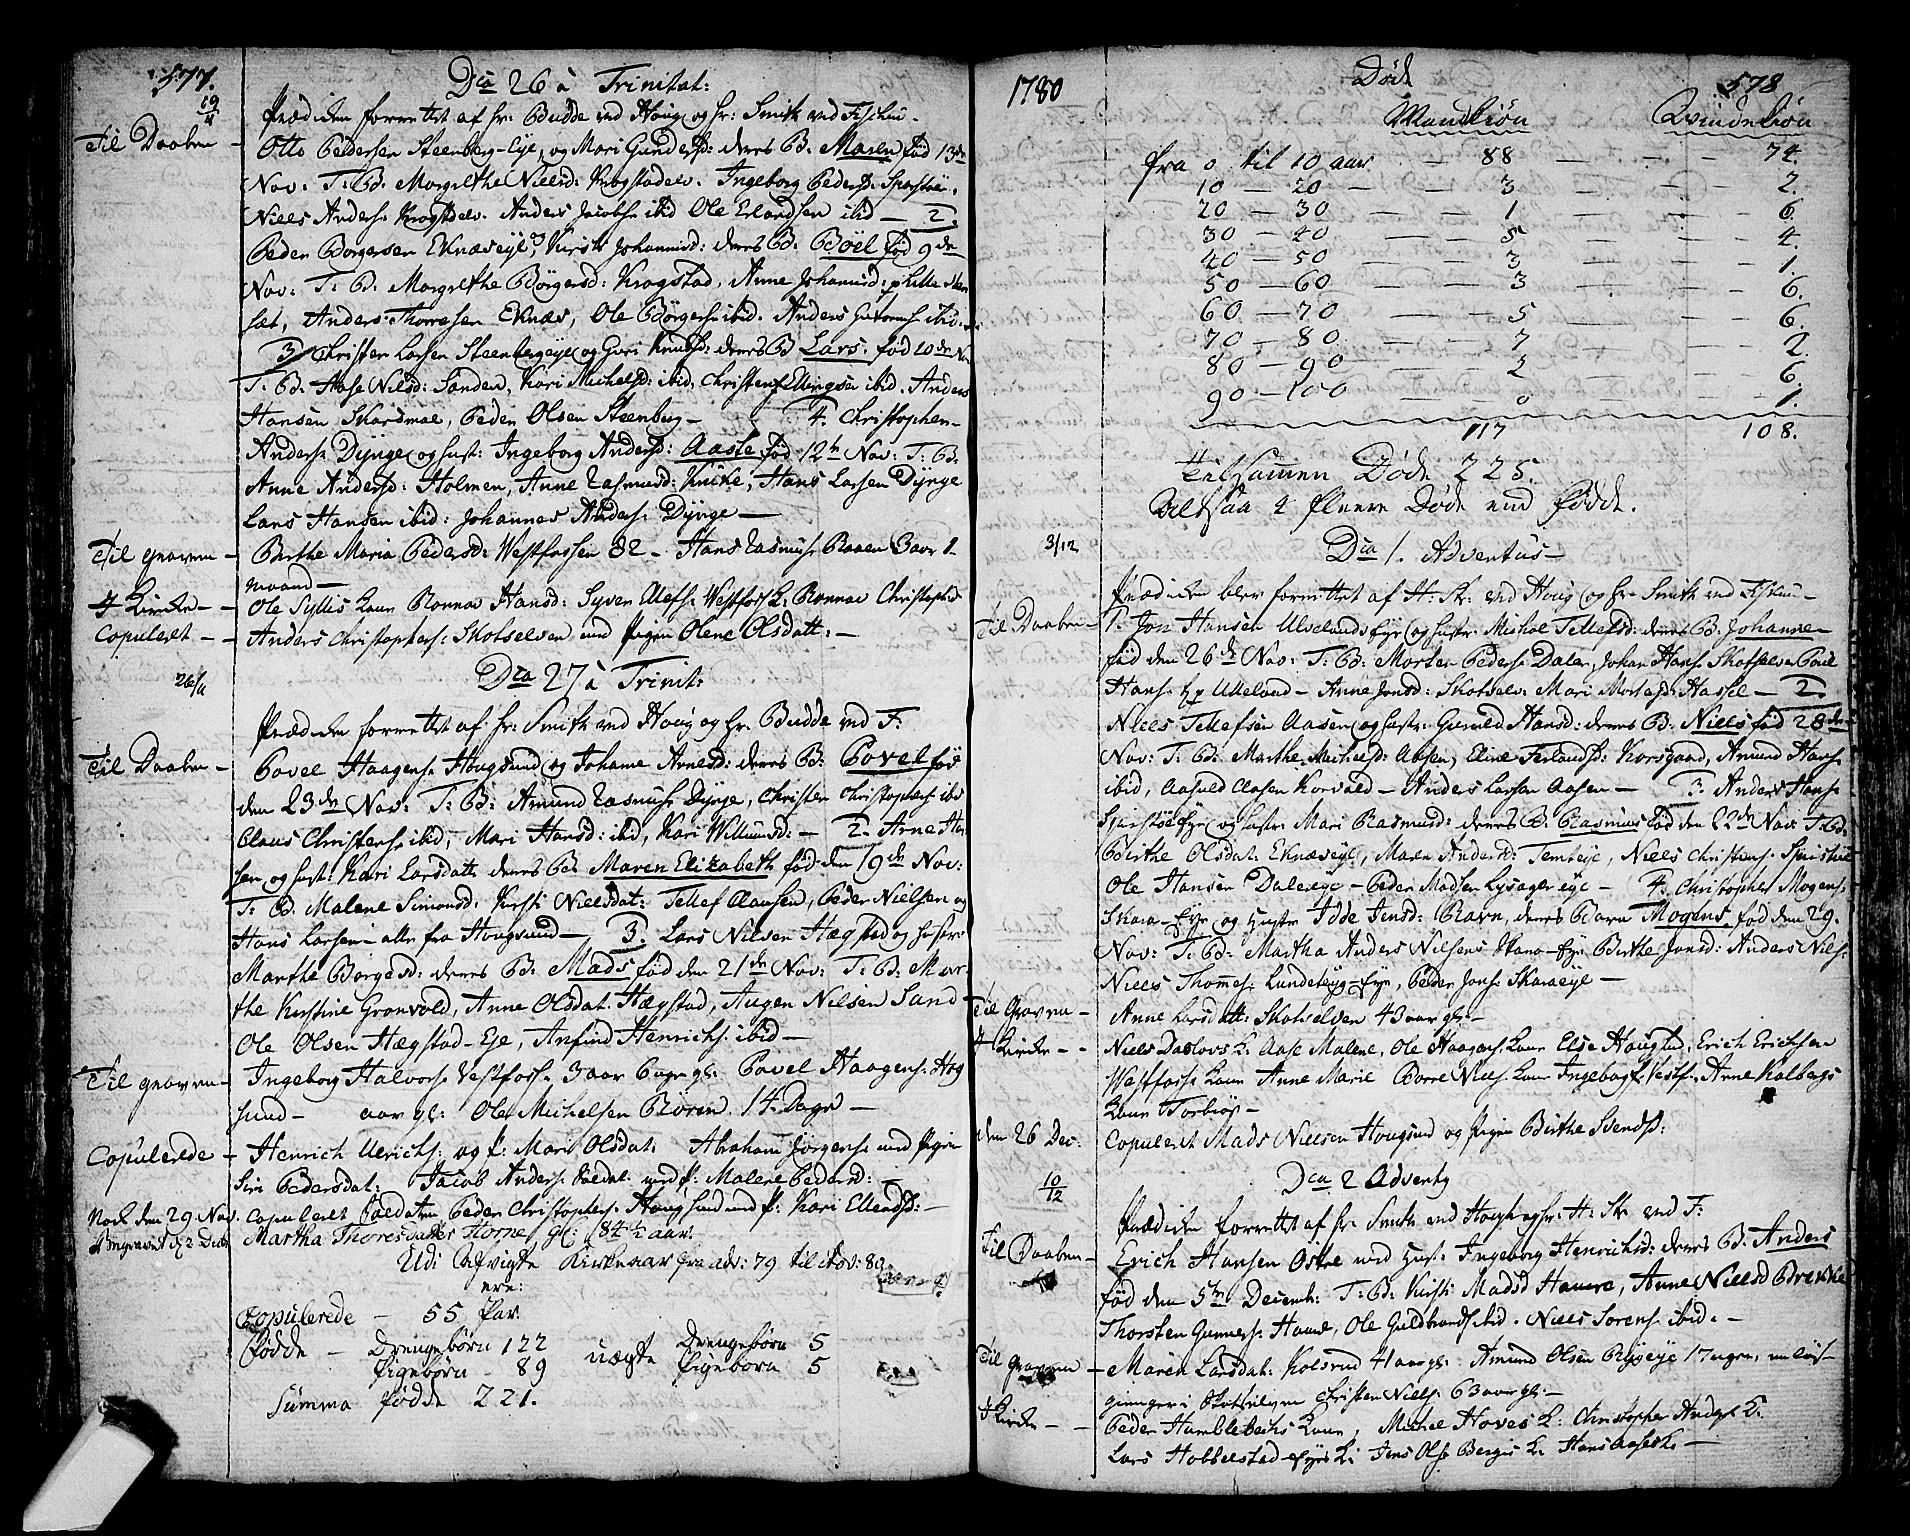 577.
19/11
Dca 26 à Trinitat:
Prædiken forrettet af hr: Budde ved Houg og hr: Smith ved Fiskum -
Til Daaben - Otto Pedersen Steenberg-Eye, og Mari Gundersd: deres B. Maren fød 13de
Nov: T: B. Margrethe Nielsd: Krogstadelv. Ingeborg Pedersd:
Niels Anders: Anders Jacobs: ibid Ole Erlandsen ibid - 2.
Peder Børgersen Eknæseye og Kirsti Johannisd: deres B. Böel fød 9de
Nov: T: B. Margrethe Börgersd: Krogstad, Anne Johannisd:
Anders Thoresen Eknæs, Ole Börgers: ibid. Anders ibid.
3 Christen Larsen Steenbergeye og Guri Knudsd: deres B Lars. fød 10de Nov
T. B. Aase Nilsd: Sanden, Kari Michelsd: ibid, Christen Ellingsen ibid. Anders
Hansen Skardmoe, Peder Olsen Steenberg - 4. Christopher
Anders: Dynge og hust: Ingeborg Andersd: Aaste fød 12te Nov: T: B.
Anne Andersd: Holmen, Anne Rasmusd: Hans Larsen Dynge
Lars Hansen ibid: Johannes Anders: Dynge -
Til Graven - Birthe Maria Pedersd: Westfossen 82 - Hans Rasmus: Raaen 3 aar 1
maand -
I Kirke - - Ole Syllis Kone Ronnov Hansd: Syver Westfos: K: Ronnov
Copuleret - - Anders Christophers: Skotselven med Pigen Olene Olsdatt: -
26/11
Dca 27 à Trinit:
Prædiken forrettet af hr: Smith ved Houg og hr: Budde ved F:
Til Daaben - Povel Haagens: Hougsund og Johanne Arnesd: deres B: Povel fød
den 23de Nov: T: B: Amund Rasmus: Dynge, Christen Christophers: ibid
Claus Christens: ibid, Mari Hansd: ibid, Kari Willumsd: - 2. Arne Han-
sen og hust: Kari Larsdatt: deres B: Maren Elizabeth fød den 19de Nov:
T: B. Malene Simonsd: Kirsti Nielsdat: Tellef Clausen, Peder Nielsen og
Hans Larsen - alle fra Hougsund - 3. Lars Nielsen Hægstad og hustr:
Marthe Borgesd: deres B: Mads fød den 21de Nov: T: B: Mar-
the Kirstine Gronvold, Anne Olsdat: Hægstad, Augen Nilsen Sand
Ole Olsen Hægstad-Eje, Anfind Henrichs: ibid -
Til Graven - Ingeborg Halvors: Vestfoss: 3 aar 6 uger gl: Povel Haagens: Hog
sund - aar gl: Ole Michelsen Bören 14 Dage -
Copulerede - Henrich Ulrichs: og P: Mari Olsdat: Abraham Jörgens: med Pigen
Siri Pedersdat: Jacob Anders: Soldat med P: Malene Pedersd: -
Nock den 29 Nov. copuleret Soldaten Peder Christophers: Hougsund med P: Kari Ellensd: -
Martha Thoresdatter Horne gl: 84½ aar.
Udi Afvigte Kirkeaar fra adv: 79 til Nov: 80
ere:
Copulerede - 55 Par.
Fødde - Drengebörn 122 uægte Drengebörn 5
Pigebörn - 89 Pigebörn 5
Summa fødde 221.
1780
Døde
578
Mandkiön Qvindekiön
fra 0 til 10 aar - 88 - - - 74.
10 - 20 - - 3 - - - 2.
20 - 30 - - 1 - - - 6.
30 - 40 - - 5 - - - 4.
40 - 50 - - 3 - - - 1.
50 - 60 - - 3 - - - 6.
60 - 70 - - 5 - - - 6.
70 - 80 - - 7 - - - 2.
80 - 90 - - 2 - - - 6.
90 - 100 - - 0 - - - 1.
117 108.
tilsamen Döde 225.
Altsaa 4 fleere Døde end Fødde.
3/12
Dca 1. Adventus -
Prædiken blev forrettet af H: Str: ved Houg og hr: Smith ved Fiskum -
Til Daaben - 1. Jon Hansen Ulvelands Eye og hustr: Michol Tellefsd: deres B: Johanne
fød den 26de Nov: T: B: Morten Peders: Daler, Johan Hans: Skotselv: Poul
Hans: Ulleland - Anne Jonsd: Skotselv: Mari Mortensd: Hassel - 2.
Niels Tellefsen Aasen og hustr: Gunild Hansd: deres B: Niels fød 28de
Nov: T: B: Marthe Michelsd: Aasen, Eline Korsgaard, Amund Hans:
ibid, Aasuld Clasen Korvald - Anders Larsen Aasen - 3: Anders Hans:
og hustr: Mari Rasmusd: deres B: Rasmus fød den 22de Nov: T: B:
Birthe Olsdat: Eknæseye, Maren Andersd: Temteye, Niels Christens:
Ole Hansen Daleeye - Peder Madsen Lysager eye - 4. Christopher Mogens:
Skara-Eye og Hustr: Idde Jensd: Ravn, deres Barn Mogens fød den 29.
Nov: T: B: Martha Anders Nilsens Skara-Eye Birthe Jonsd: Anders Nils:
Niels Thomes: Eye, Peder Jons: Skaraeye -
Til Graven - Anne Larsdatt: Skotselven 43 aar gl: -
I Kirke - - Niels Daslovs K: Aase Malene, Ole Haagens: Kone Else Hougsund, Erich Erichsen
Westfoss: Kone Anne Marie Borre Niels: Kone Ingeborg Vestf: Arne Kolbergs
Kone Torbiör -
den 26 Dec. Copuleret Mads Nielsen Hougsund og Pigen Birthe Svendsd:
10/12
Dca 2 Adventy
Prædiken forrettet af hr: Smith ved Hough og hr: H: Str: ved F:
Til Daaben - Erich Hansen Östre med Hust: Ingeborg Henrichsd: deres B: Anders
fød den 5te Decemb: T: B: Kirsti Madsd Havere, Anne Nielsd Brekke
Thorsten Gunners: Ole Guldbrands: ibid. Niels Sorens: ibid. -
Til Graven - Maren Larsdat: Kolsrud 41 aar gl: Amund Olsen Ryseye 17 uger, en
Skotselven Christen Niels: 63 aar gl: -
I Kirke - - Peder Hamblebechs Kone, Michel Hoves K: Christopher Anders: K.
Lars Hobbelstad Eyes K: Jens Ols: Berges K: Hans Aases K: -